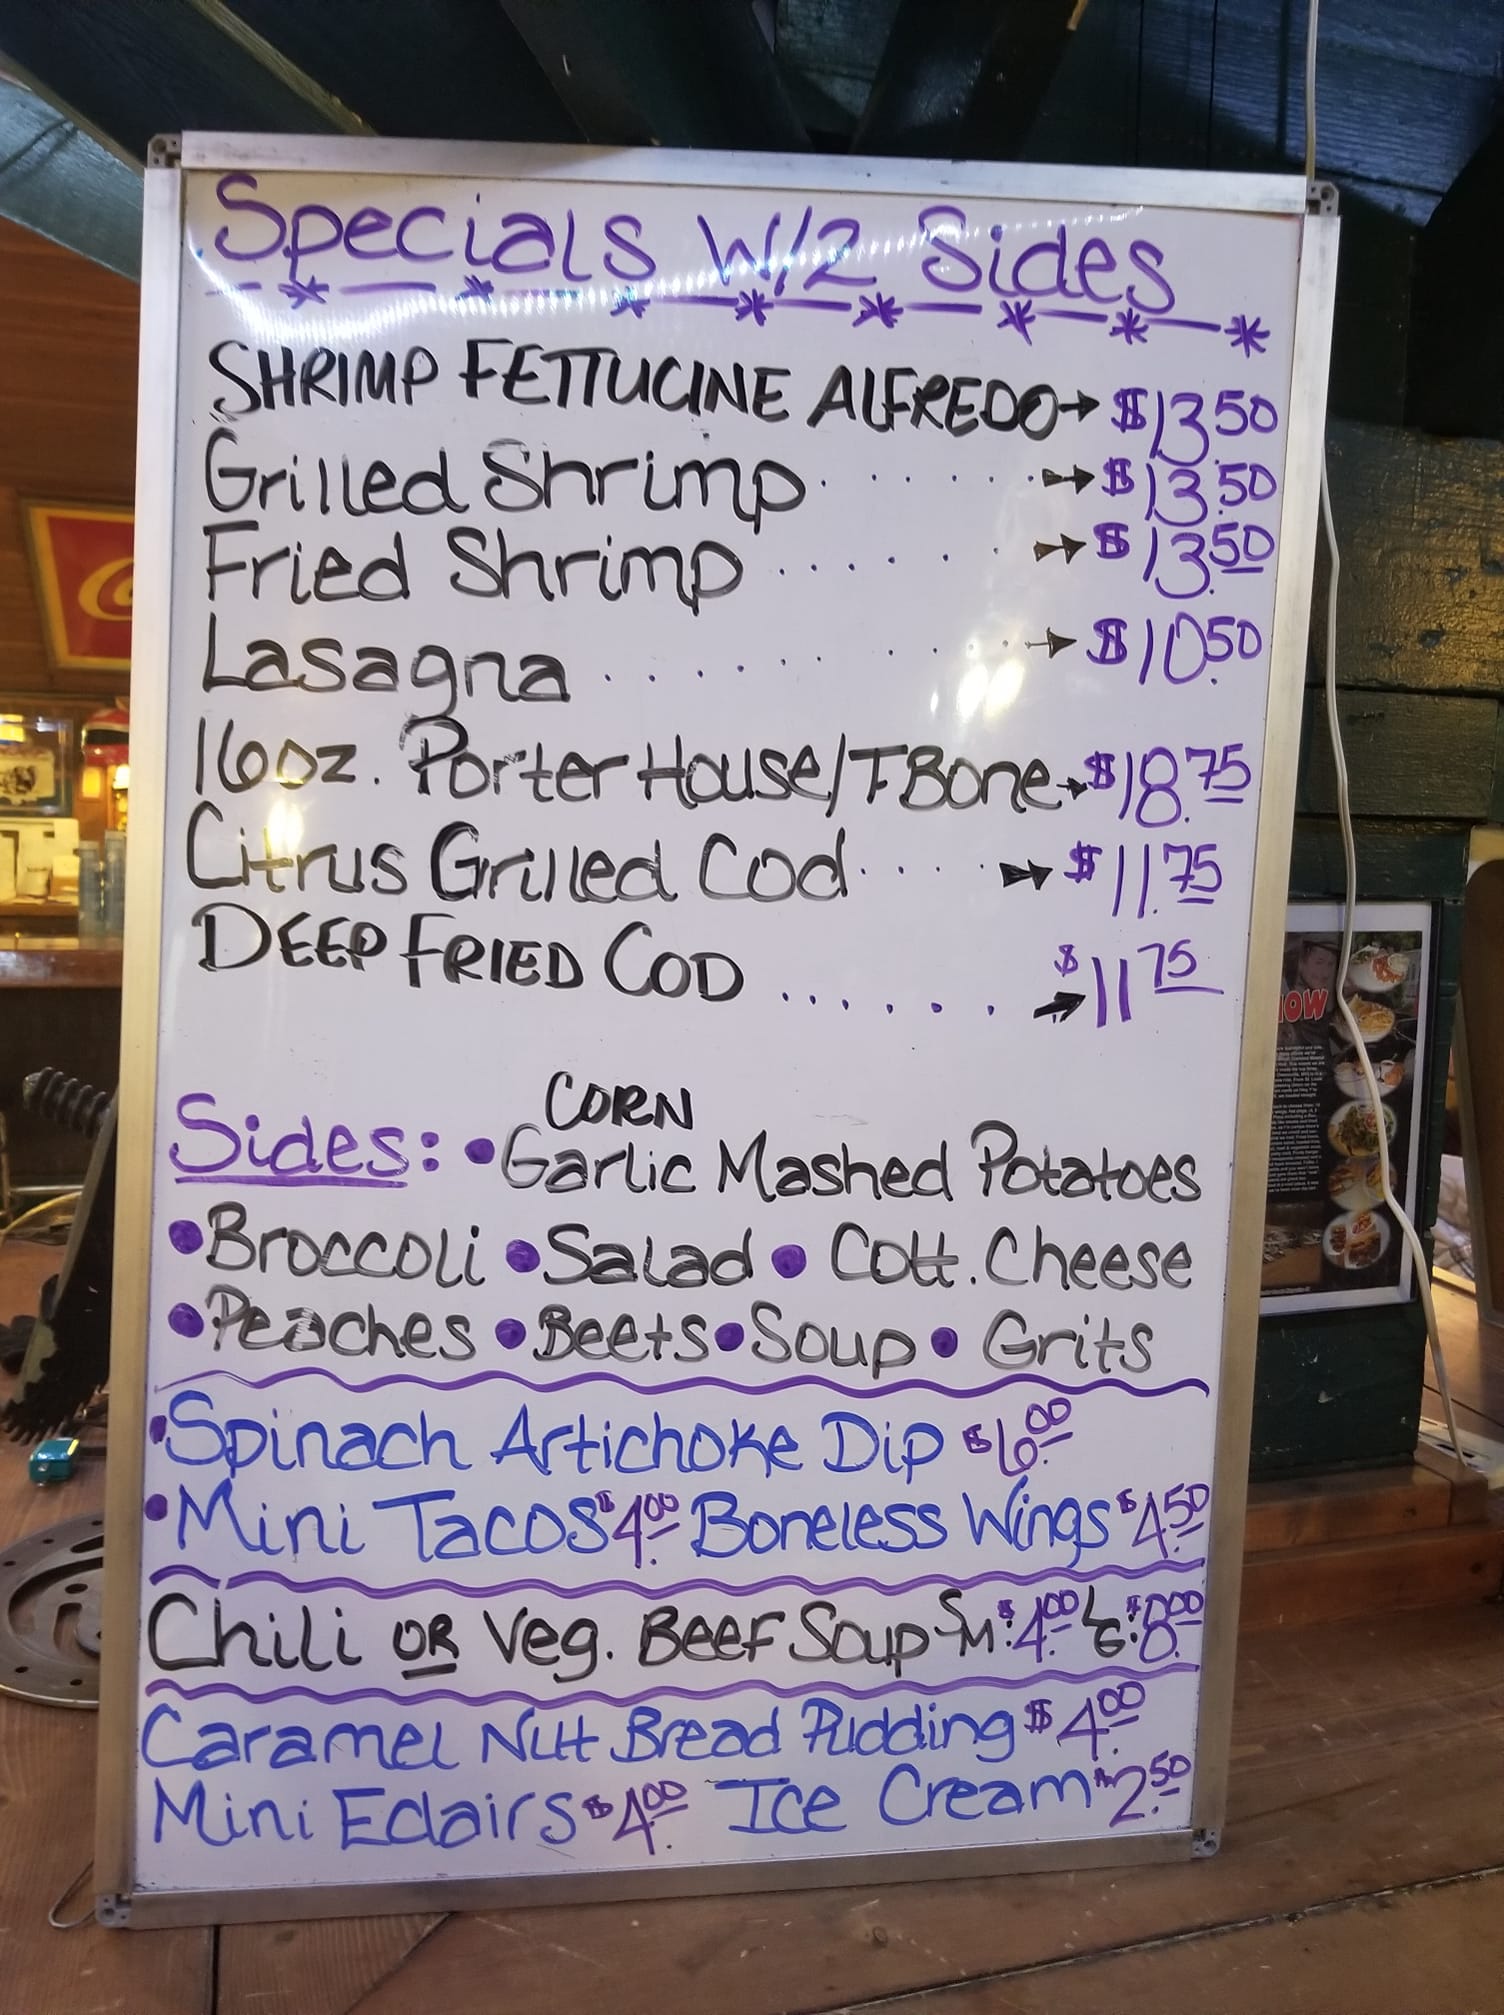 Specials W/2 Sides
SHRIMP FETTUCINE ALFREDO → $13.50
Grilled Shrimp . . . . . . → $13.50
Fried Shrimp . . . . . . → $13.50
Lasagna . . . . . . . . → $10.50
16oz. Porter House/TBone → $18.75
Citrus Grilled Cod . . . . → $11.75
DEEP FRIED COD . . . . . . → $11 75
CORN
Sides: • Garlic Mashed Potatoes
• Broccoli • Salad • Cott. Cheese
• Peaches • Beets • Soup • Grits
• Spinach Artichoke Dip $6.00
• Mini Tacos $4.00 Boneless Wings $4.50
Chili OR Veg. Beef Soup Sm: $4.00 LG: $8.00
Caramel Nut Bread Pudding $4.00
Mini Eclairs $4.00 Ice Cream $2.50
OW